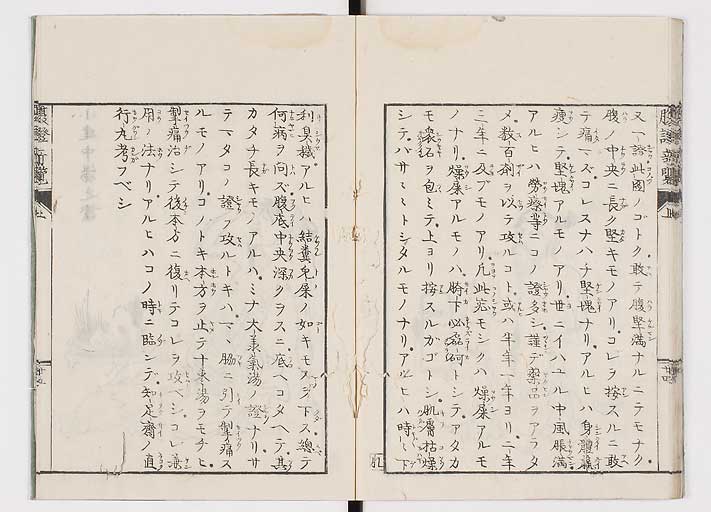 又一證此圖ノゴトク敢テ腹堅滿ナルニテモナク
腹ノ中央ニ長ク堅キモノアリコレヲ按スルニ敢
テ痛マズコレスナハチ堅塊ナリアルヒハ身體羸
痩シテ堅塊アルモノアリ世ニイハユル中風脹滿
アルヒハ勞瘵等ニコノ證多シ謹デ藥品ヲアラタ
メ数百劑ヲ以テ攻ルコト或ハ半年一年ヨリ二年
三年ニ及ブモノアリ凡此等モシクハ燥屎アルモ
ノナリ燥屎アルモノハ臍下必磊砢トシテアタカ
モ礫石ヲ包ミテ上ヨリ按スルガゴトシ肌膚枯燥
シテバサミトシタルモノナリアルヒハ時ニ下
利臭穢アルヒハ結糞兎屎ノ如キモノヲ下ス總テ
何病ヲ問ズ腹底中央深クヲスニ底ヘコタヘテ其
カタチ長キモノアルハミナ大承氣湯ノ證ナリサ
テマタコノ證ヲ攻ルトキハ脇ニ引テ掣痛ス
ルモノアリコノトキ本方ヲ止テ十棗湯ヲモチヒ
掣痛治シテ後本方ニ復リテコレヲ攻ベシコレ兼
用ノ法ナリアルヒハコノ時ニ臨ンデ知足齋ノ直
行丸考フベシ